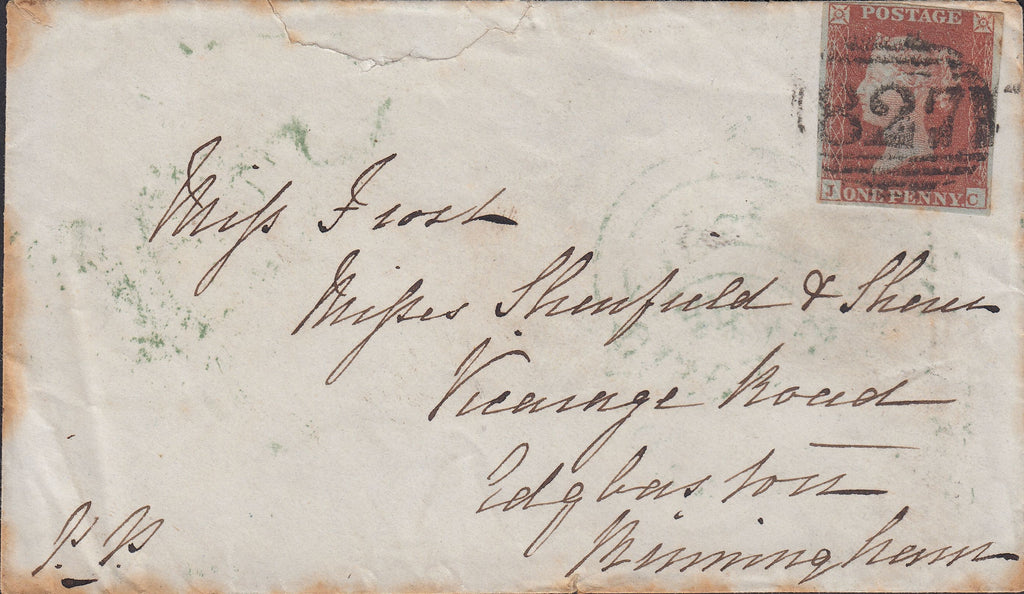 POSTAGE
827
J ONE PENNY C
Miss Frost
Misses Shenfield &
Vicarage Road
Edgbaston
Birmingham
P.P.